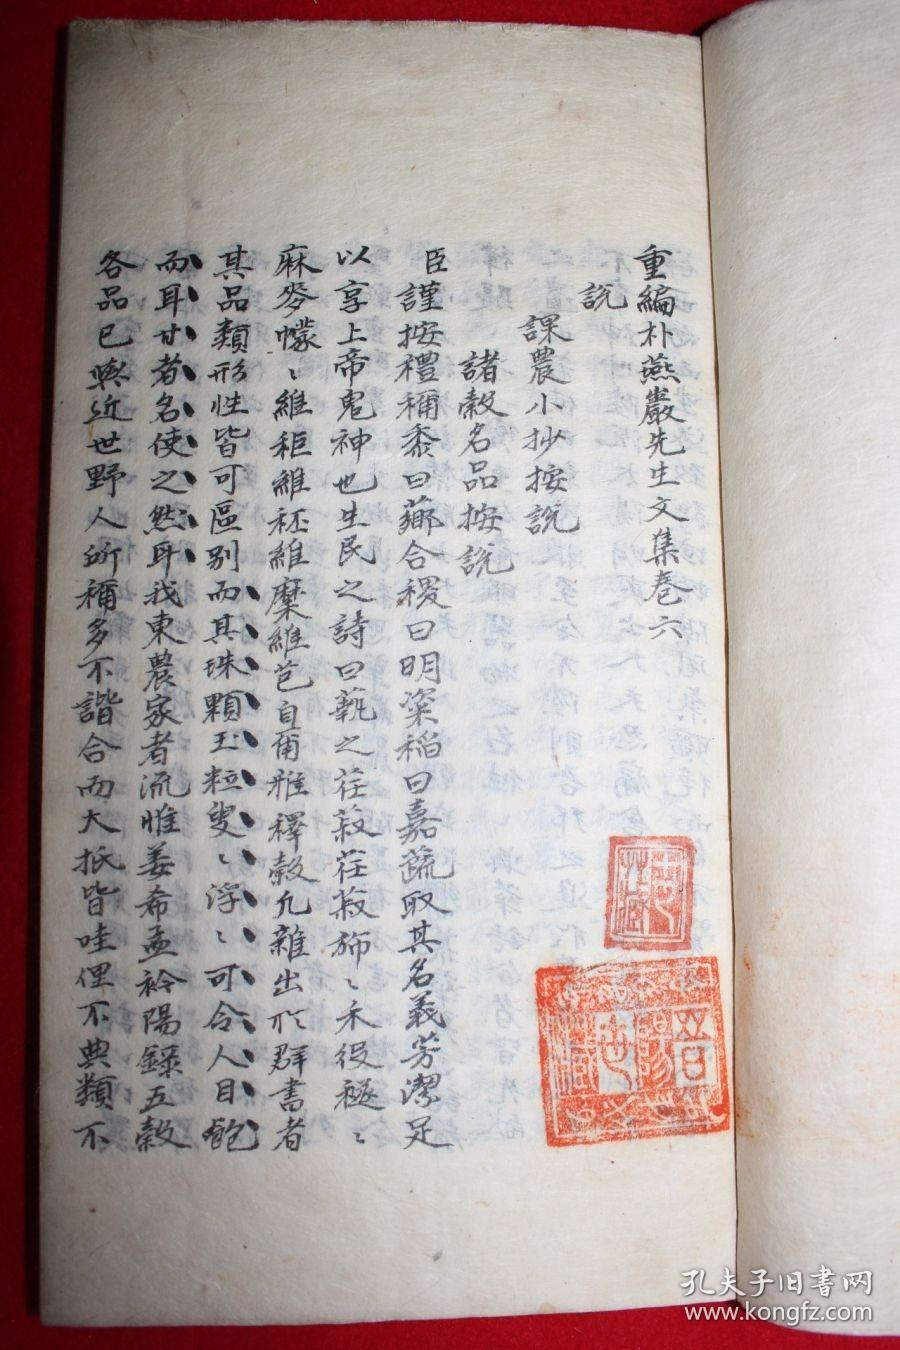 重編朴燕巖先生文集卷六
說
課農小抄按說
諸穀名品按說
臣謹按禮稱黍曰薌合稷曰明粢稻曰嘉蔬取其名義芳潔足
以享上帝鬼神也生民之詩曰蓺之荏菽荏菽斾〻禾役穟〻
麻麥幪〻維秬維秠維穈維芑自甫雅釋穀允雜出於群書者
其品類形性皆可區別而其珠顆玉粒叟〻浮〻可令人目飽
而耳甘者名使之然耳我東農家者流惟姜希孟衿陽錄五穀
各品已與近世野人所稱多不諧合而大抵皆哇俚不典類不
孔夫子旧書网
www.kongfz.com